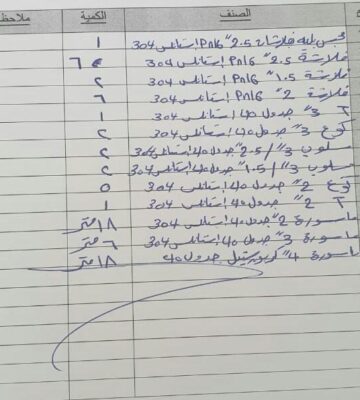 الصنف الكمية ملاحظات
محبس بليه فلانشات 2.5" Pn16 استانلس 304 ١
فلانشة 2.5" Pn16 استانلس 304 ٦
فلانشة 1.5" Pn16 استانلس 304 ٢
فلانشة 2" Pn16 استانلس 304 ٦
T 3" جدول 40 استانلس 304 ١
كوع 3" جدول 40 استانلس 304 ٢
مسلوب 3"/2.5" جدول 40 استانلس 304 ٢
مسلوب 3"/1.5" جدول 40 استانلس 304 ٢
كوع 2" جدول 40 استانلس 304 ٥
T 2" جدول 40 استانلس 304 ١
ماسورة 2" جدول 40 استانلس 304 ١٨ متر
ماسورة 3" جدول 40 استانلس 304 ٦ متر
ماسورة 4" كربون ستيل جدول 40 ١٨ متر